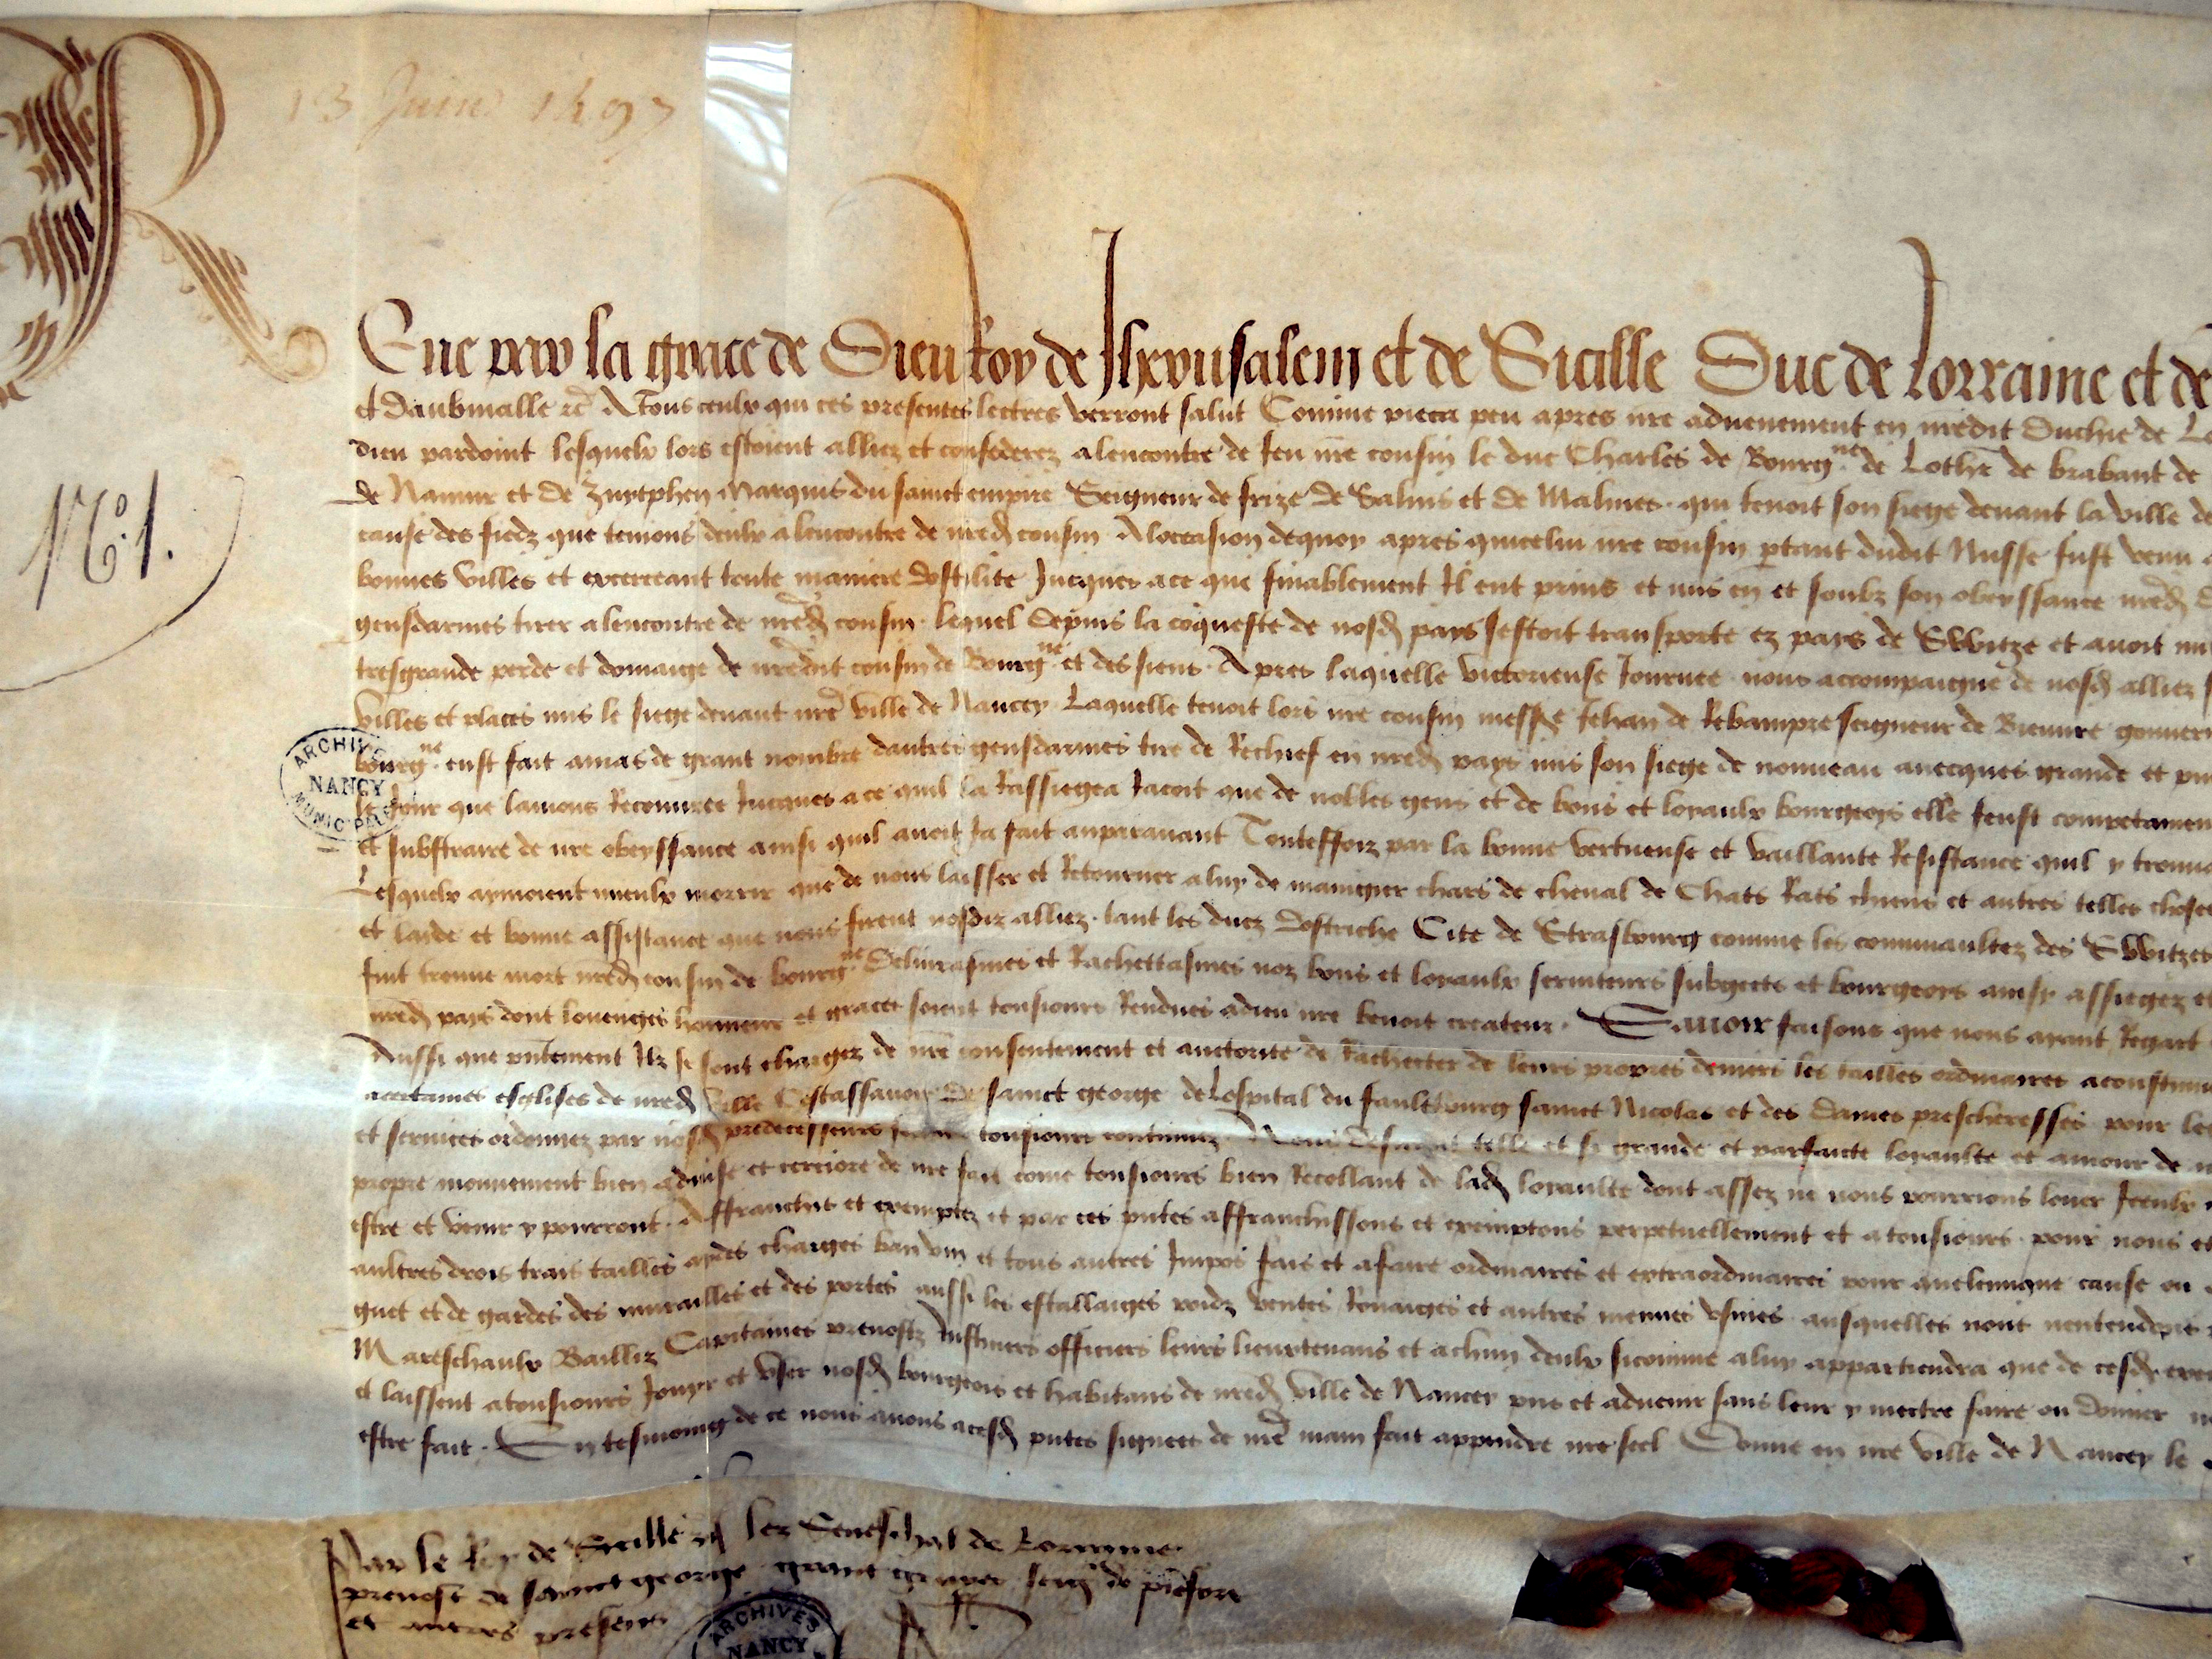 13 Juin 1497
R
Ene par la grace de Dieu Roy de Jherusalem et de Sicille Duc de Lorraine et de
et daubmalle etc A Tous ceulx qui ces presentes lectres verront salut Comme pieca peu apres nre aduenement en nredit Duchie de
dieu pardoint lesquelx lors estoient alliez et confederez alencontre de feu nre cousin le duc Charles de Bourgne de Lothr de brabant de
de Namur et de Zuytphen Marquis du sainct empire Seigneur de frize de Salins et de Malines qui tenoit son siege deuant la ville de
cause des fiedz que tenions deulx alencontre de nred cousin A loccasion dequoy apres quicelui nre cousin ptant dudit Nusse fust venu
bonnes villes et excerceant toute maniere dostilite Jucques ace que finablement Il eut prins et mis en et soubz son obeyssance nred
gensdarmes tirer alencontre de nred cousin lequel depuis la coqueste de nosd pays sestoit transporte ez pays de Switze et auoit
tresgrande perde et domaige de nredit cousin de Bourgne et des siens Apres laquelle victorieuse Journee nous accompaigne de nosd alliez
villes et places mis le siege deuant nre ville de Nancey Laquelle tenoit lors nre cousin messre Jehan de Rebampre seigneur de Bieuure
bourgne eust fait amas de grant nombre dautres gensdarmes tire de Rechief en nred pays mis son siege de nouueau auecques grande et
le Jour que lauions Recouuree Jucques ace quil la Rassiegea Jacoit que de nobles gens et de bons et loyaulx bourgeoys elle feust
et subftraire de nre obeyssance ainsi quil auoit Ja fait auparauant Touteffoiz par la bonne vertueuse et vaillante Resistance quil y
Lesquelx aymoient mieulx morrir que de nous laisser et Retourner a luy de maingier chars de cheval de Chats Rats chiens et autres telles choses
et laide et bonne assistance que nous firent nosdiz alliez tant les ducz dostriche Cite de Strasbourg comme les communaultez des Switzes
fut treuue mort nred cousin de bourgne Deliurasmes et Rachettasmes noz bons et loyaulx seruiteurs subgects et bourgeoys ainsy assiegez et
nred pays dont louenges honneur et graces soient tousiours Rendues adieu nre benoit createur Sauoir faisons que nous ayant Regart
Aussi que pntement Ilz se sont chargez de nre consentement et auctorite de Rachetter de leurs propres deniers les tailles ordinaires
acertaines esglises de nred ville Cestassauoir De sainct george deLospital du faulxbourg sainct Nicolas et des dames prescheresses pour les
et seruices ordonnez par nosd predecesseurs tousiours continuez telle et si grande et parfaicte loyaulte et amour de
propre mouuement bien aduise et certiore de nre fait come tousiours bien Recollant de lad loyaulte dont assez ne nous pourrions louer Iceulx
estre et venir y pourront Affranchit et exemptez et par ces pntes affranchissons et exemptons perpetuellement et atousiours pour nous et
aultres drois trais tailles aydes charges ban vin et tous autres Impos fais et afaire ordinaires et extraordinaires pour quelconque cause ou
guet et de gardes des murailles et des portes aussi les estallaiges poidz ventes Rouaiges et autres menues vsines ausquelles
Mareschaulx Bailliz Capitaines preuostz Justiciers officiers leurs lieuxtenans et achun deulx sicomme aluy appartiendra que de cesd
et laissent atousiours Jouyr et vser nosd bourgeois et habitans de nred ville de Nancey pns et aduenir sans leur y mectre faire ou donner
estre fait En tesmoing de ce nous auons acesd pntes signees de nre main fait appendre nre seel Donne en nre ville de Nancey le
No. 1.
ARCHIVES
NANCY
MUNICIPALES
Par le Roy de Sicille lez Seneschal de Lorraine
preuost de sainct george de pierefort
et autres presens
ARCHIVES
NANCY